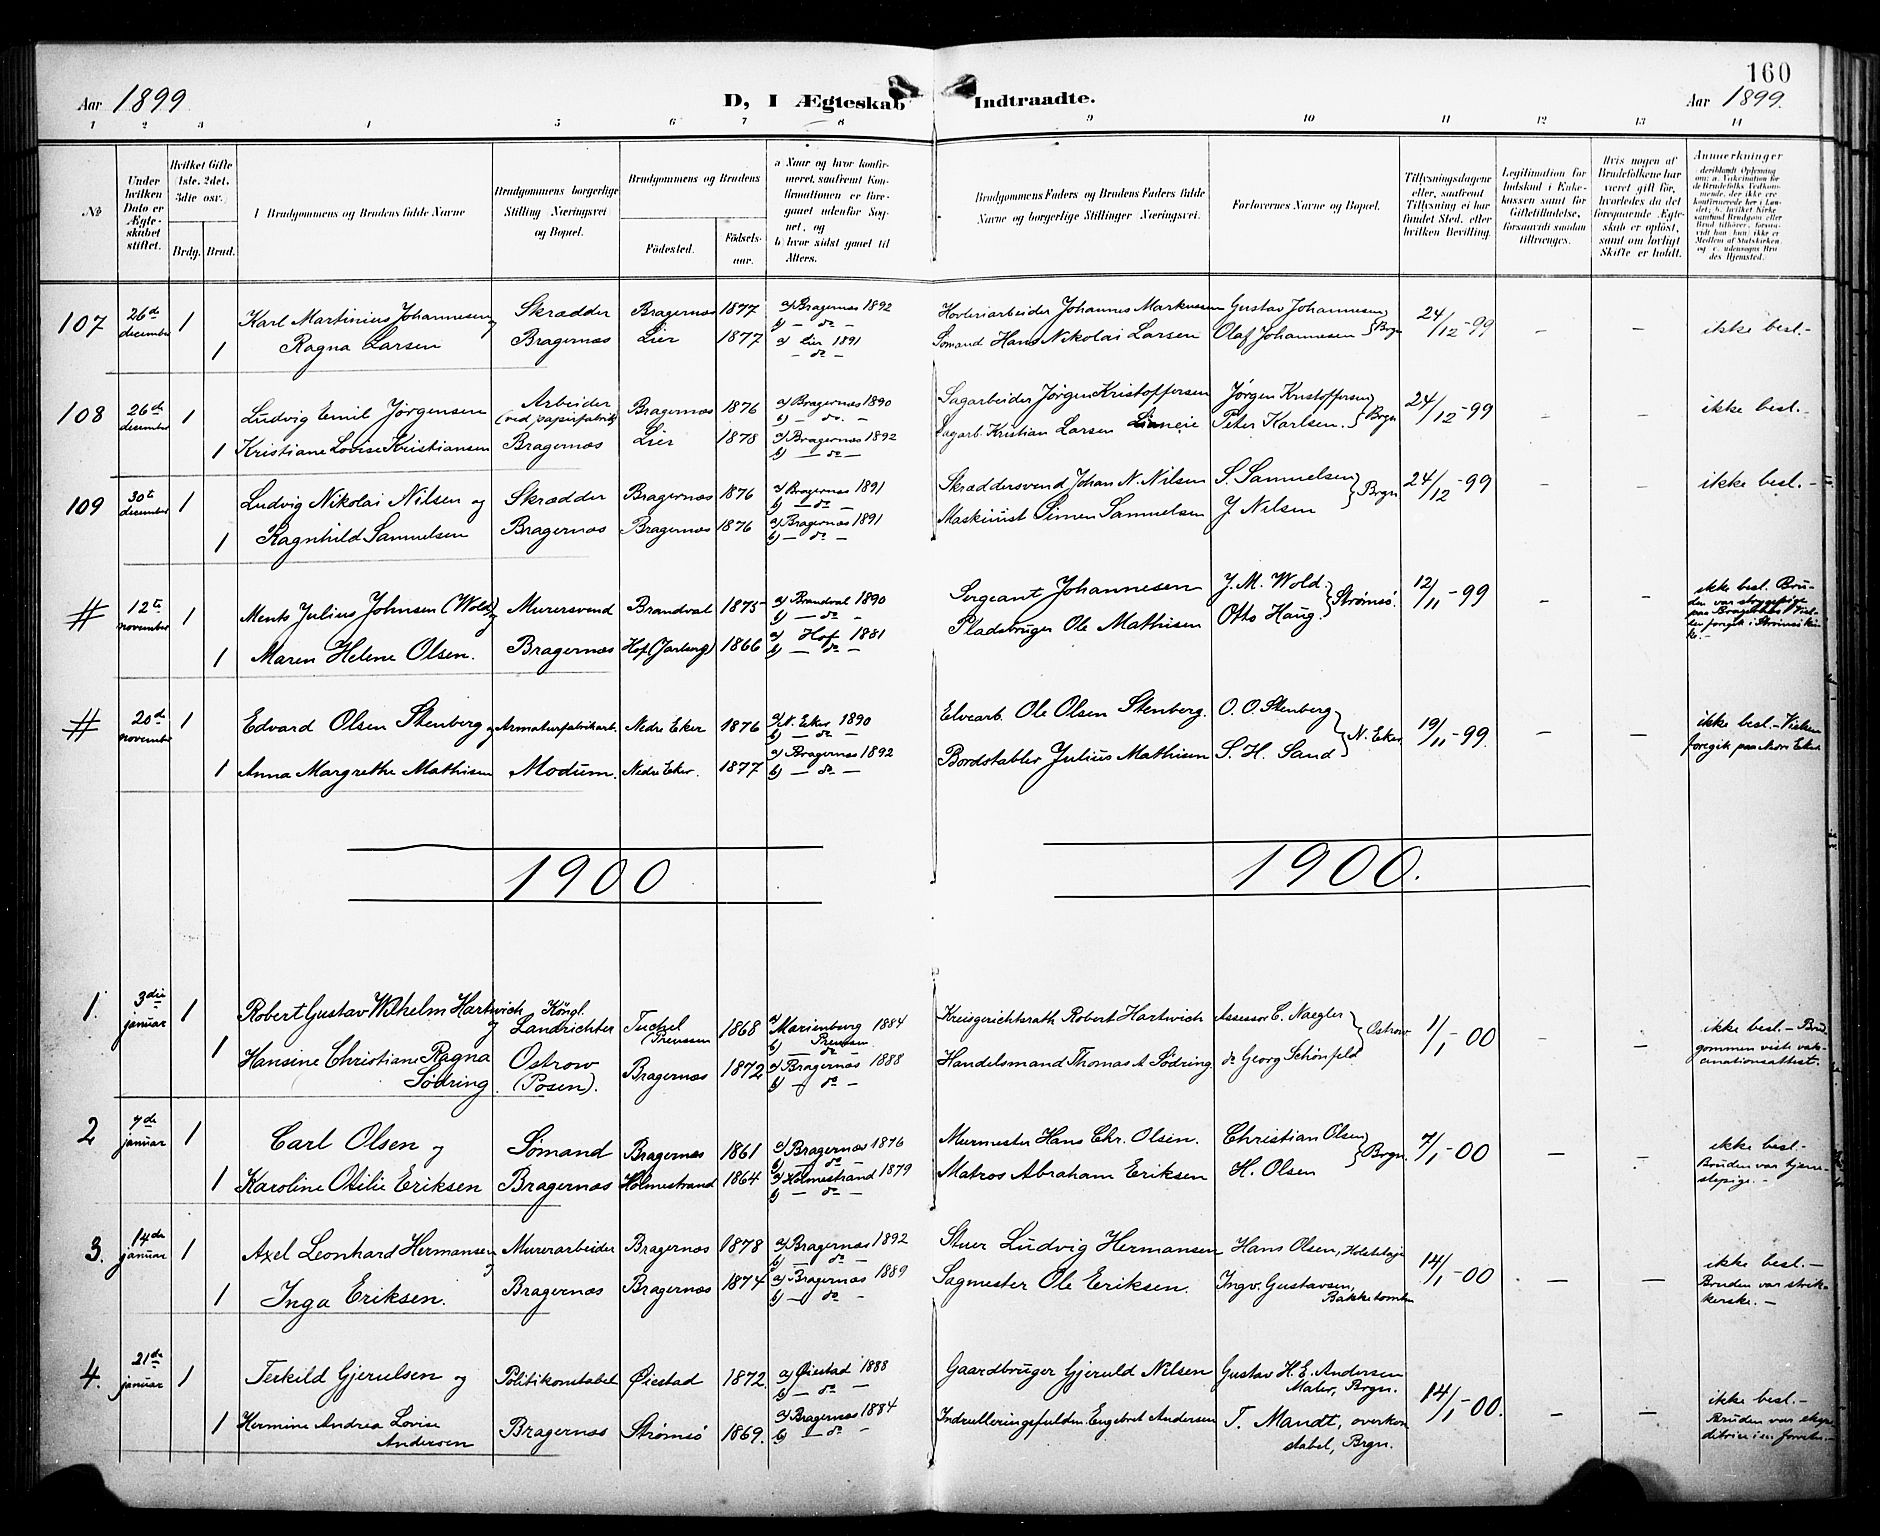 160
Aar 1899. D, I Ægteskab Indtraadte. Aar 1899.
1 2 3 4 5 6 7 8 9 10 11 12 13 14
No
Under hvilken Dato er Ægteskabet stiftet.
Hvilket Gifte (1ste, 2det, 3die osv.)
Brdg. Brud.
Brudgommens og Brudens fulde Navne
Brudgommens borgerlige Stilling Næringsvei og Bopæl.
Brudgommens og Brudens
Födested. Födselsaar.
a Naar og hvor konfirmeret, saafremt Konfirmationen er foregaaet udenfor Sognet, og
b hvor sidst gaaet til Alters.
Brudgommens Faders og Brudens Faders fulde Navne og borgerlige Stillinger Næringsvei.
Forlovernes Navne og Bopæl.
Tillysningsdagene eller, saafremt Tillysning ei har fundet Sted, efter hvilken Bevilling.
Legitimation for Indskud i Enkekassen samt for Giftetilladelse, forsaavidt saadan tiltrænges.
Hvis nogen af Brudefolkene har været gift för, hvorledes da det foregaaende Ægteskab er oplöst, samt om lovligt Skifte er holdt.
Anmærkninger
107 26de december 1 Karl Martinius Johannesen og Skrædder Bragernæs 1877 a) Bragernæs 1892 b) — do — Johannes Markussen Gustav Johannesen } Brgn 24/12-99 — — ikke besl.-
1 Ragna Larsen Bragernæs Lier 1877 a) Lier 1891 — do — Sömand Hans Nikolai Larsen Olaf Johannesen
108 26de december 1 Ludvig Emil Jørgensen Arbeider (ved papirfabrik) Bragernæs 1876 a) Bragernæs 1890 b) — do — Sagarbeider Jørgen Kristoffersen Jørgen Kristoffersen } Brgn 24/12-99 — — ikke besl.-
1 Kristiane Lovise Kristiansen Bragernæs Lier 1878 a) Bragernæs 1892 b) — do — Sagarb. Kristian Larsen Peter Karlsen.
109 30te december 1 Ludvig Nikolai Nilsen og Skrædder Bragernæs 1876 a) Bragernæs 1891 b) — do — Skræddersvend Johan N. Nilsen S. Samuelsen } Brgn 24/12-99 — — ikke besl.-
1 Ragnhild Samuelsen Bragernæs Bragernæs 1876 a) Bragernæs 1891 b) — do — Maskinist Simen Samuelsen J. Nilsen
# 12te november 1 Ments Julius Johnsen (Wold) og Murersvend Brandval 1875 a) Brandval 1890 b) — do — Sergeant Johannesen J. M. Wold } Strømsö. 12/11-99 — — ikke besl. Bruden var
1 Maren Helene Olsen. Bragernæs Hof (Jarlsbg) 1866 a) Hof 1881 b) — do — Pladsbruger Ole Mathisen Otto Haug.
# 20de november 1 Edvard Olsen Stenberg og Armaturfabrikarb. Nedre Eker 1876 a) N. Eker 1890 b) — do — Elvearb. Ole Olsen Stenberg. O. O. Stenberg } N. Eker 19/11-99. — — ikke besl.- Vielsen foregik paa Nedre Eker
1 Anna Margrethe Mathisen Modum. Nedre Eker. 1877 a) Bragernæs 1892 b) — do — Bordstabler Julius Mathisen S. H. Sand
1900 1900.
1. 3die januar 1 Robert Gustav Wilhelm Hartwich og Köngl. Landrichter Tuchel Preussen 1868 a) Marienburg Preussen 1884 b) — do — Kreisgerichtsrath Robert Hartwich Assessor C. Naegler } Ostrow 1/1-00 — — ikke besl.- Brudgommen viste vaksinationsattest.
1 Hansine Christiane Ragna Södring. Ostrow (Posen). Bragernæs 1872 a) Bragernæs 1888 b) — do — Handelsmand Thomas A Södring. do Georg Schönfeld
2 7de januar 1 Carl Olsen og Sømand Bragernæs 1861 a) Bragernæs 1876 b) — do — Murmester Hans Chr. Olsen. Christian Olsen } Brgn. 7/1-00 — — ikke besl.- Bruden var
1 Karoline Otilie Eriksen Bragernæs Holmestrand 1864 a) Holmestrand 1879 b) — do — Matros Abraham Eriksen H. Olsen
3. 14de januar 1 Axel Leonhard Hermansen og Murerarbeider Bragernæs 1878 a) Bragernæs 1892 b) — do — Stuer Ludvig Hermansen Hans Olsen, 14/1-00 — — ikke besl.- Bruden var strikkerske.-
1 Inga Eriksen. Bragernæs Bragernæs 1874 a) Bragernæs 1889 b) — do — Sagmester Ole Eriksen. Ingv. Gustavsen, Bakketomten
4. 21de januar 1 Terkild Gjerulsen og Politikonstabel Øiestad 1872. a) Øiestad 1888 b) — do — Gaardbruger Gjeruld Nilsen Gustav H. E. Andersen Maler, Brgn. 14/1-00. — — ikke besl.- Bruden var
1 Hermine Andrea Lovise Andersen Bragernæs Strømsö 1869. a) Bragernæs 1884 b) — do — Engebret Andersen T. Mandt, overkonstabel, Brgn.